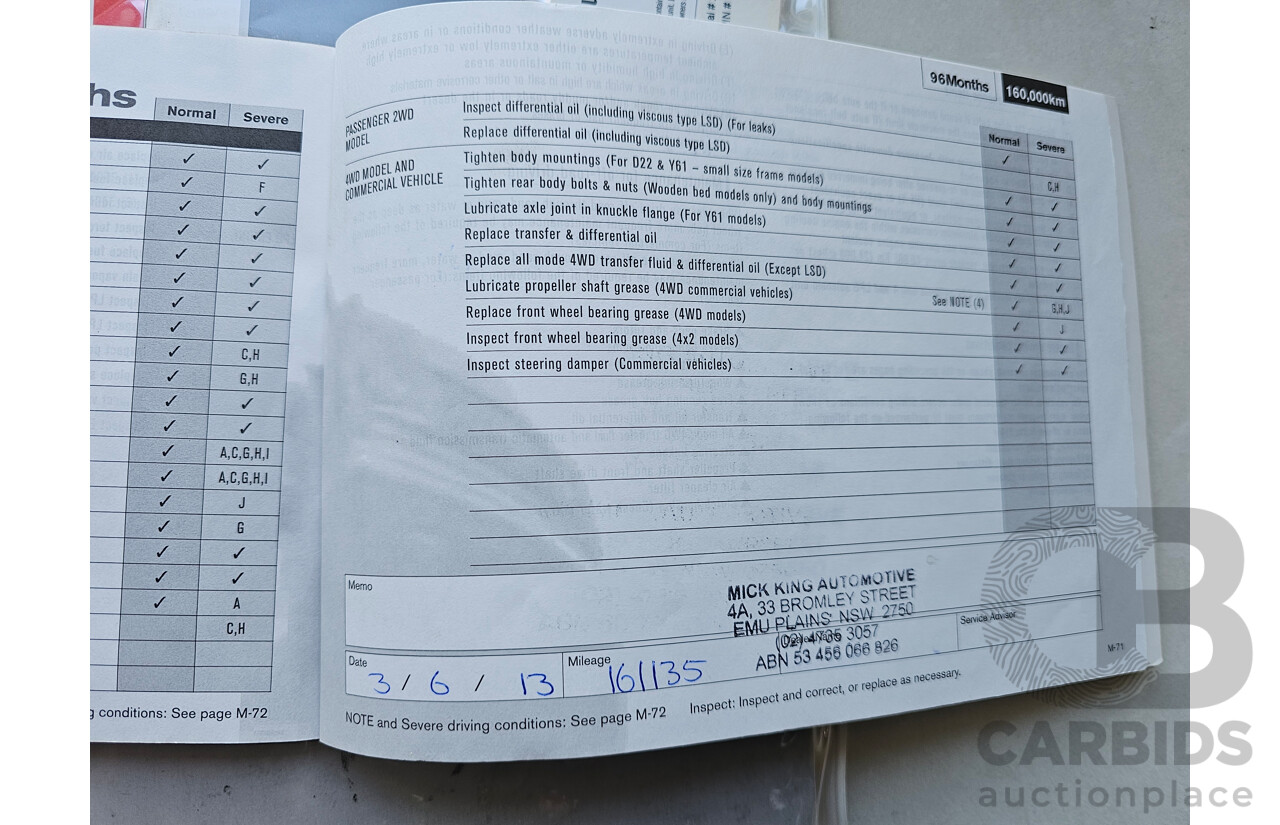 hs
Normal Severe
✓ ✓
✓ F
✓ ✓
✓ ✓
✓ ✓
✓ ✓
✓ ✓
✓ ✓
✓ C,H
✓ G,H
✓ ✓
✓ ✓
✓ A,C,G,H,I
✓ A,C,G,H,I
✓ J
✓ G
✓ ✓
✓ ✓
✓ A
C,H
g conditions: See page M-72
96Months 160,000km
Normal Severe
PASSENGER 2WD
MODEL
Inspect differential oil (including viscous type LSD) (For leaks) ✓
Replace differential oil (including viscous type LSD) C,H
4WD MODEL AND
COMMERCIAL VEHICLE
Tighten body mountings (For D22 & Y61 – small size frame models) ✓ ✓
Tighten rear body bolts & nuts (Wooden bed models only) and body mountings ✓ ✓
Lubricate axle joint in knuckle flange (For Y61 models) ✓ ✓
Replace transfer & differential oil ✓ ✓
Replace all mode 4WD transfer fluid & differential oil (Except LSD) ✓ ✓
Lubricate propeller shaft grease (4WD commercial vehicles) See NOTE (4) ✓ G,H,J
Replace front wheel bearing grease (4WD models) ✓ J
Inspect front wheel bearing grease (4x2 models) ✓ ✓
Inspect steering damper (Commercial vehicles) ✓ ✓
Memo
MICK KING AUTOMOTIVE
4A, 33 BROMLEY STREET
EMU PLAINS NSW 2750
(02) 4735 3057
ABN 53 456 066 826
Service Advisor
Date
3 / 6 / 13
Mileage
161135
M-71
NOTE and Severe driving conditions: See page M-72 Inspect: Inspect and correct, or replace as necessary.
CB
CARBIDS
auctionplace